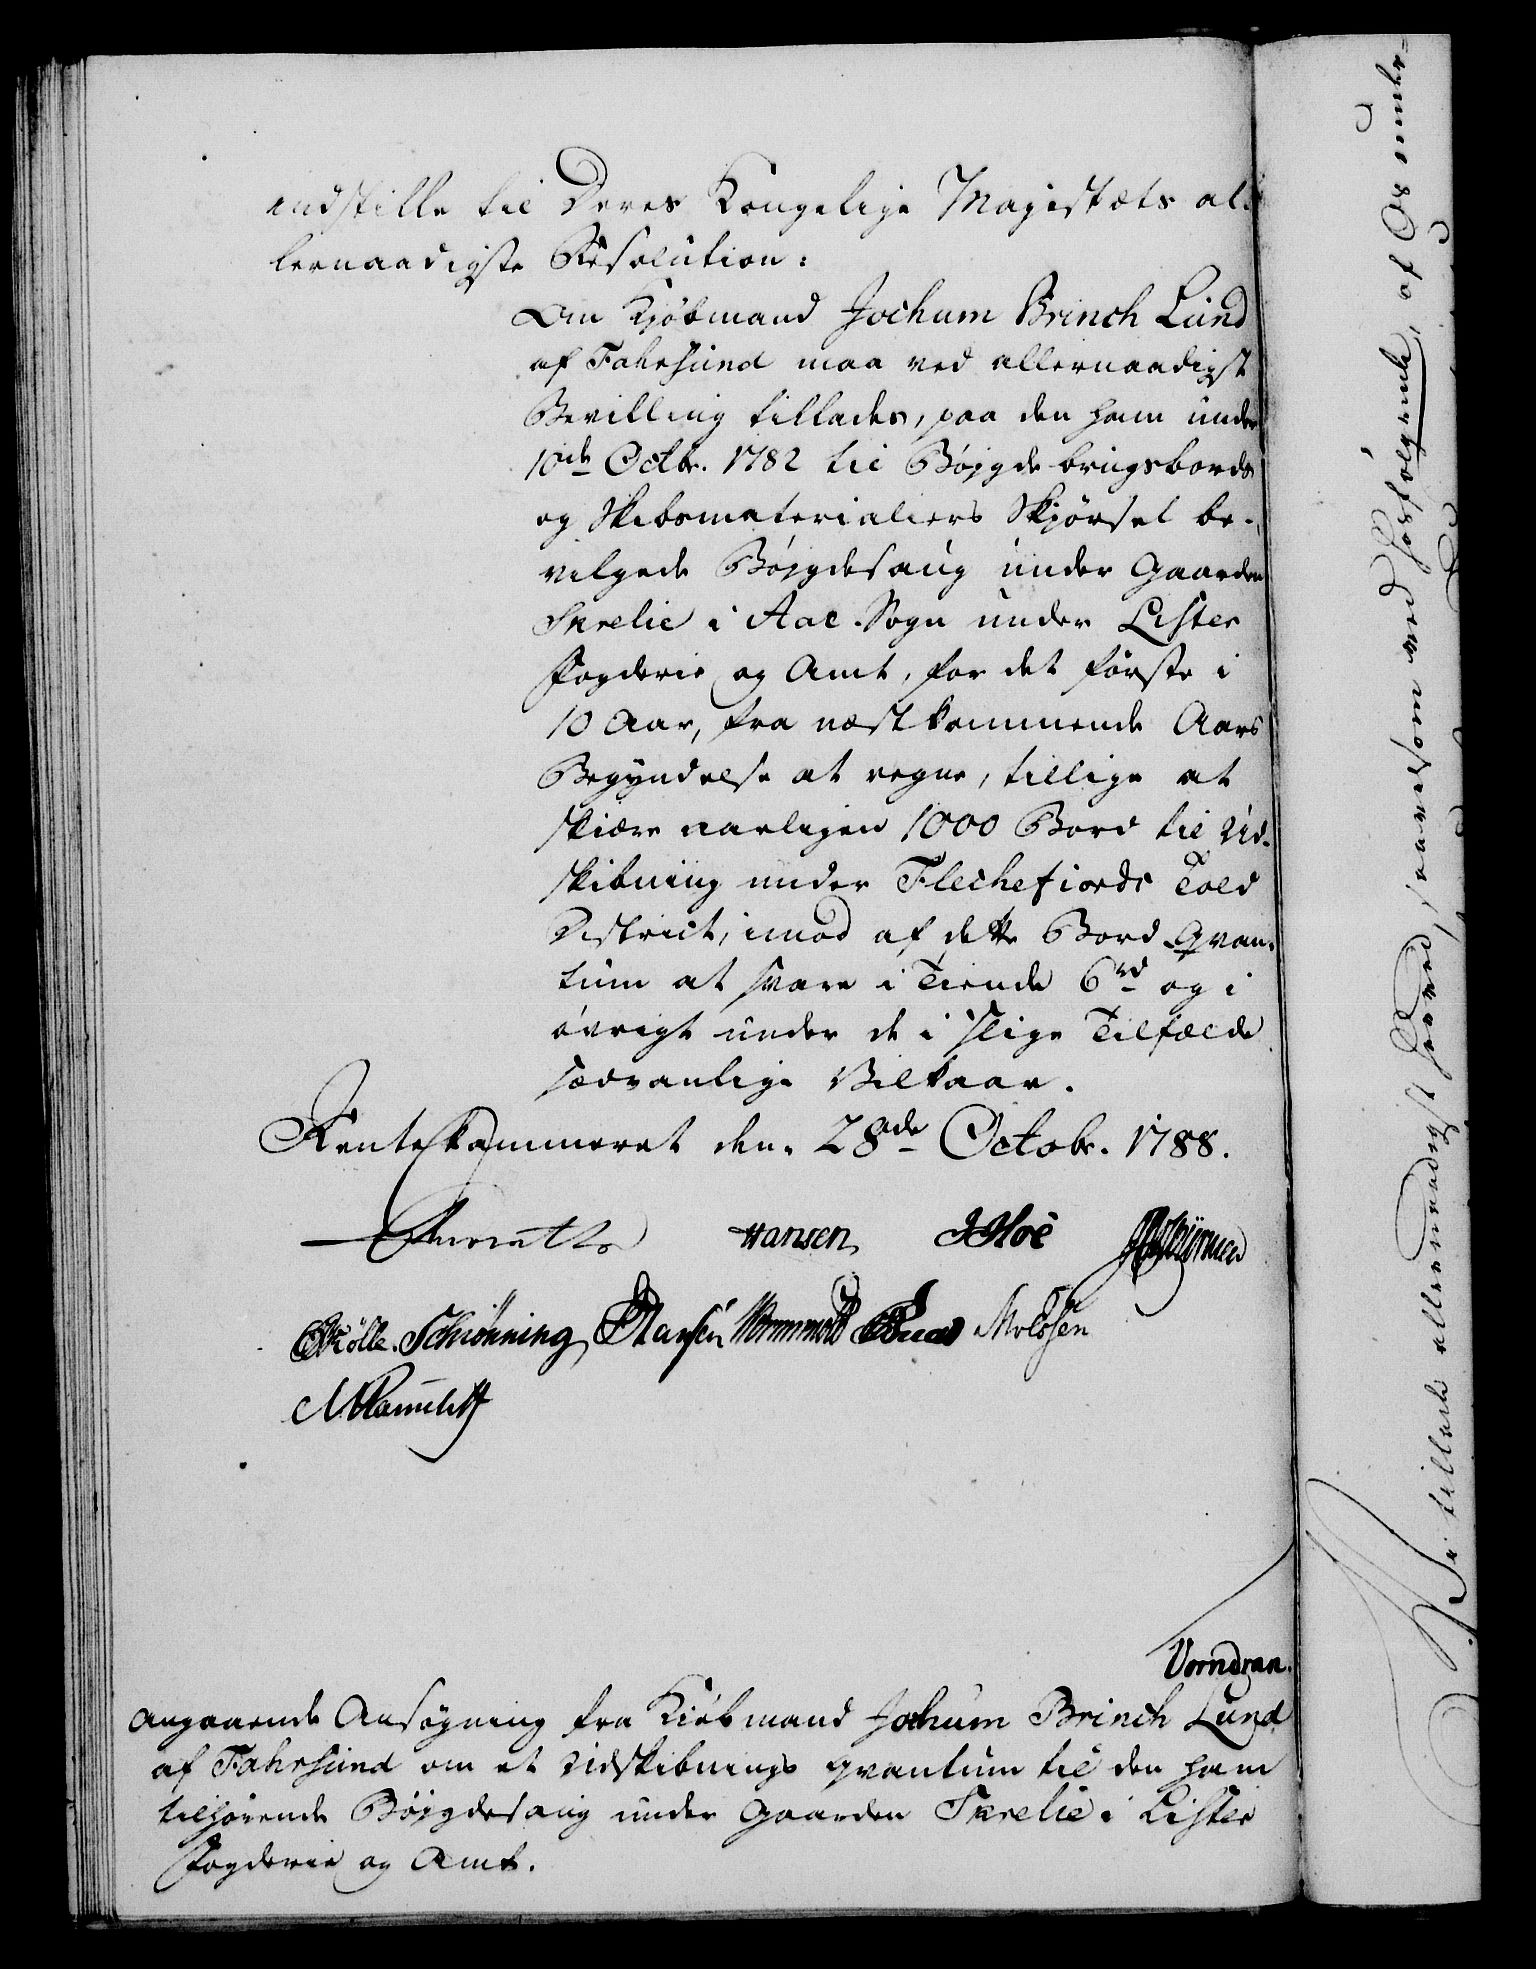 indstille til Deres Kongelige Majestæts al-
lernaadigste Resolution:
Om Kjøbmand Jochum Brinch Lund
af Fahrsund maa ved allernaadigst
Bevilling tillades, paa den ham under
10de Octbr. 1782 til Bøygde brugsbords
og Skibsmaterialiers Skjørsel be-
vilgede Bøygdesaug under Gaarden
i Aae Sogn under Lister
Fogderie og Amt, for det første i
10 Aar, fra næstkommende Aars
Begyndelse at regne, tillige at
skiære aarligen 1000 Bord til Ud-
skibning under Flechefiords Told
District, imod af dette Bord-Qvan-
tum at svare i Tiende 6 rd og i
øvrigt under de i slige Tilfælde
sædvanlige Vilkaar.
Rentekammeret den 28de Octobr. 1788.
Hansen JHoë
Schiønning Hansen Wormskiold Moldsen
Vorndran.
Angaaende Ansøgning fra Kiøbmand Jochum Brinch Lund
af Fahrsund om et Udskibnings qvantum til den ham
tilhørende Bøygdesaug under Gaarden i Lister
Fogderie og Amt.
Vi tillade allernaadigst herved, saavelsom ved hosfølgende, af Os under-